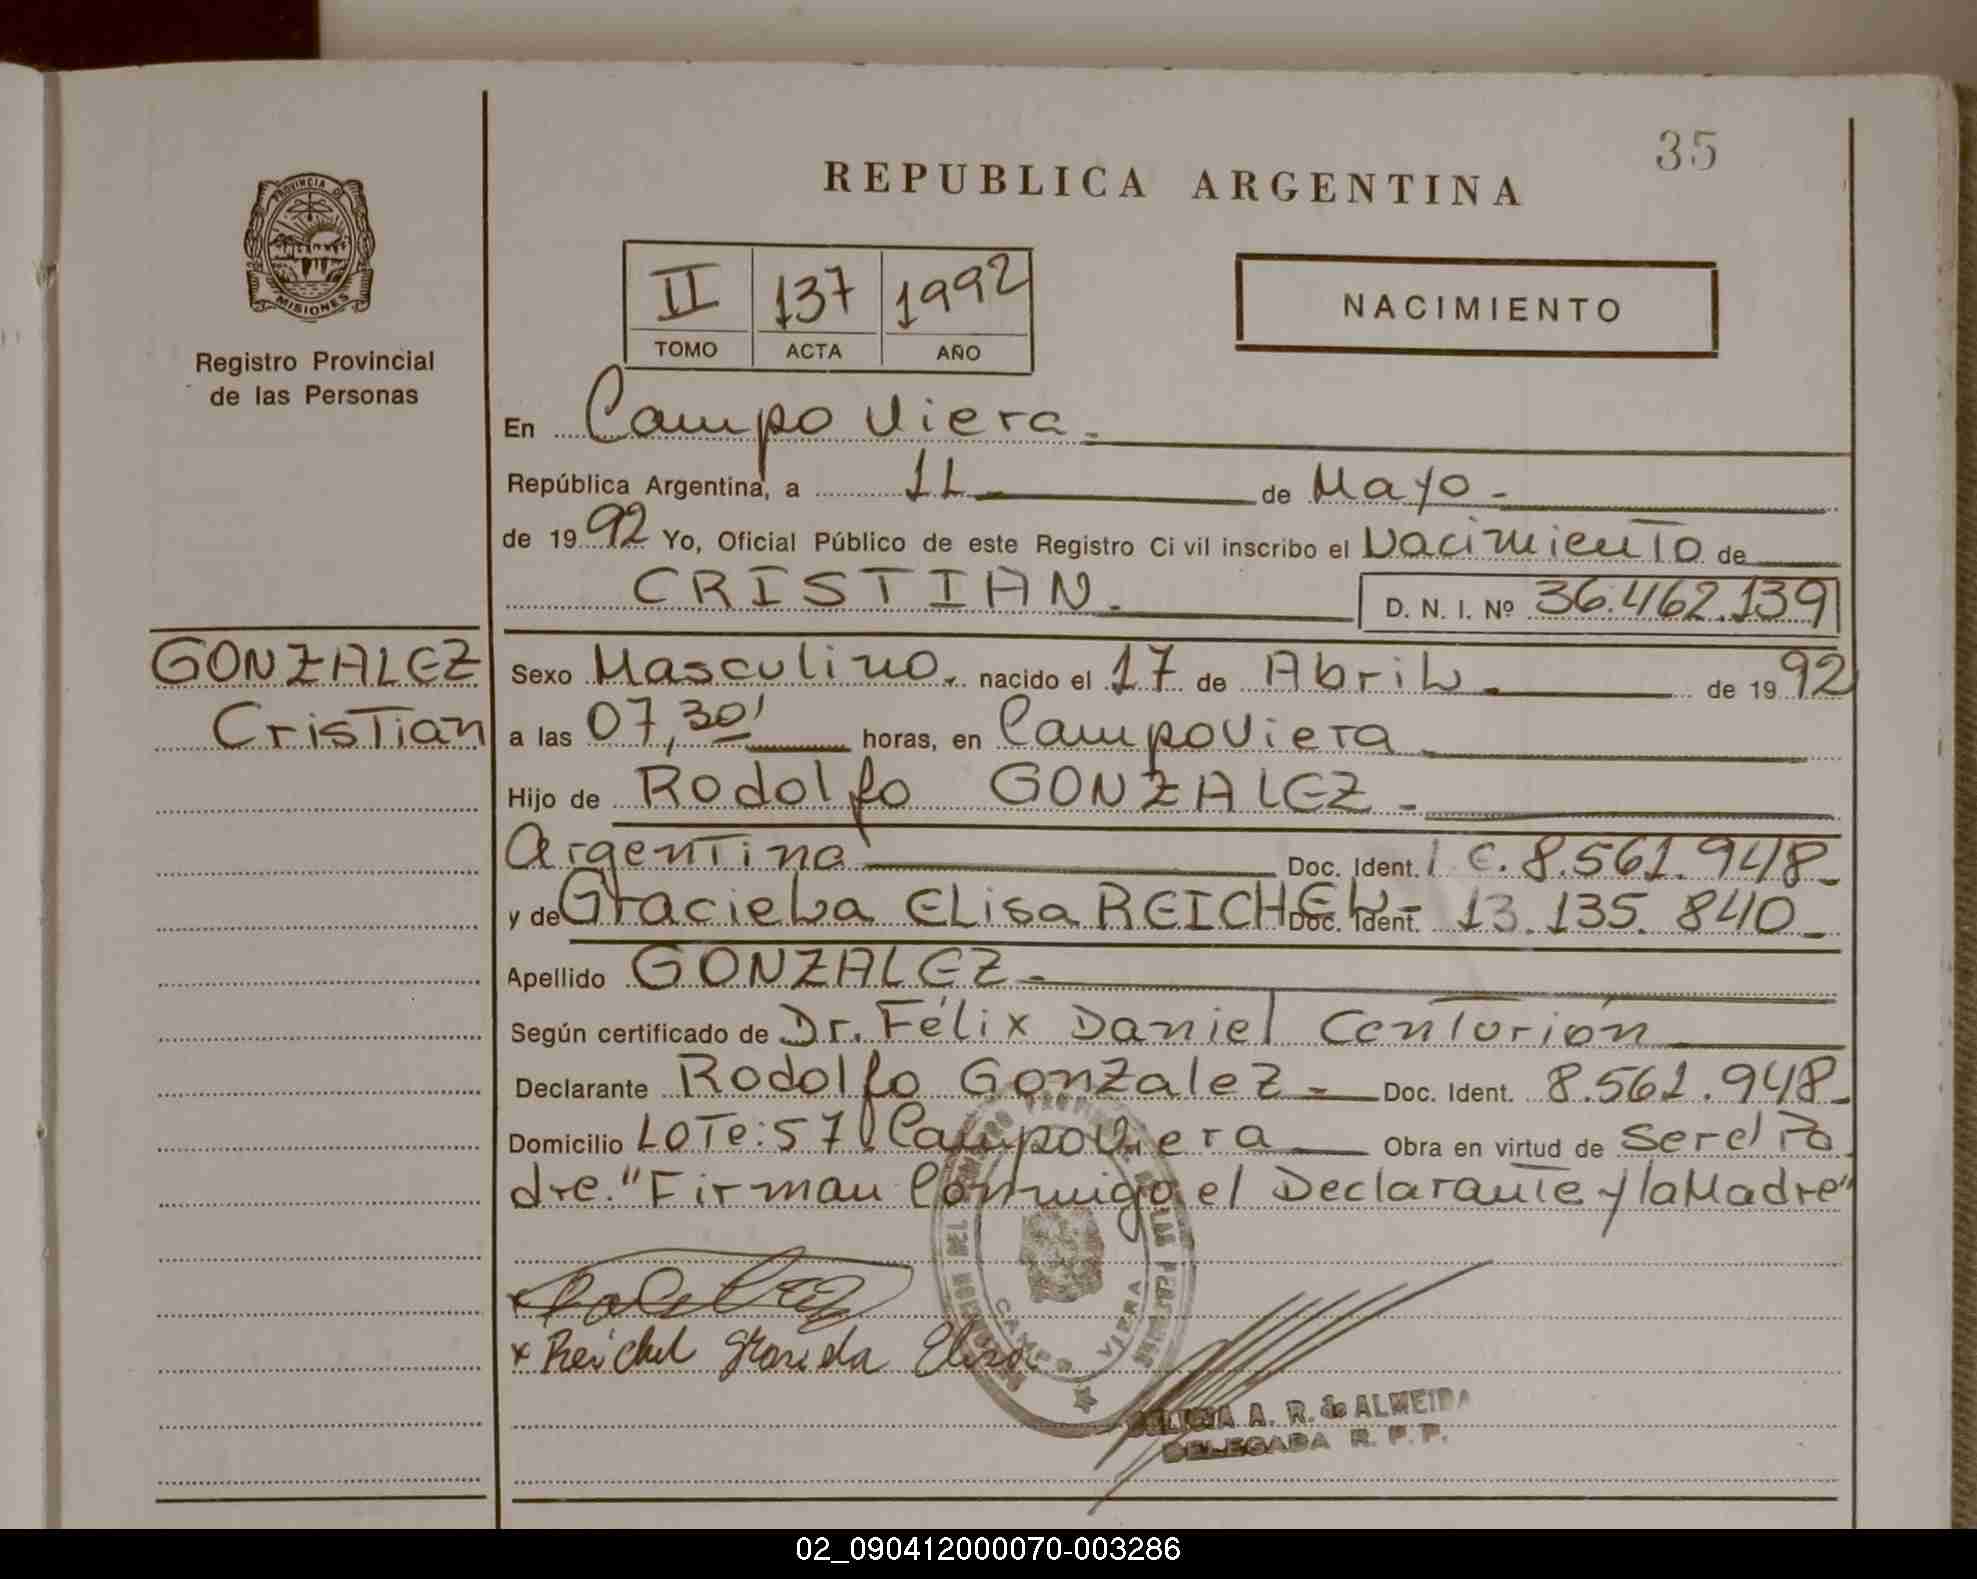 35
REPUBLICA ARGENTINA
PROVINCIA DE
MISIONES
Registro Provincial
de las Personas
II 137 1992
TOMO ACTA AÑO
NACIMIENTO
En Campo Viera
República Argentina, a 11 de Mayo
de 1992 Yo, Oficial Público de este Registro Civil inscribo el Nacimiento de
CRISTIAN D. N. I. Nº 36.462.139
GONZALEZ
Cristian
Sexo Masculino. nacido el 17 de Abril de 1992
a las 07,30' horas, en Campo Viera
Hijo de Rodolfo GONZALEZ
Argentina Doc. Ident. 8.561.948
y de Graciela Elisa REICHEL Doc. Ident. 13.135.840
Apellido GONZALEZ
Según certificado de Dr. Félix Daniel Centurión
Declarante Rodolfo Gonzalez Doc. Ident. 8.561.948
Domicilio Lote: 57 Campo Viera Obra en virtud de ser el Pa
dre. "Firman Conmigo el Declarante y la Madre"
x Reichel Graciela Elisa
CAMPO VIERA
A. R. de ALMEIDA
DELEGADA R. P. P.
02_090412000070-003286